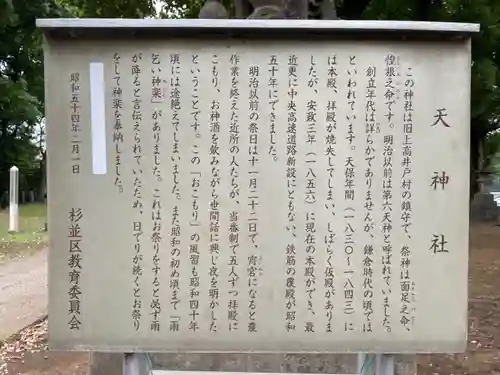 天神社
この神社は旧上高井戸村の鎮守で、祭神は面足之命、
惶根之命です。明治以前は第六天神と呼ばれていました。
創立年代は詳らかでありませんが、鎌倉時代の頃では
といわれています。天保年間(一八三〇〜一八四三)に
は本殿、拝殿が焼失してしまい、しばらく仮殿がありま
したが、安政三年(一八五六)に現在の本殿ができ、最
近更に中央高速道路新設にともない、鉄筋の覆殿が昭和
五十年にできました。
明治以前の祭日は十一月二十二日で、宵宮になると農
作業を終えた近所の人たちが、当番制で五人ずつ拝殿に
こもり、お神酒を飲みながら世間話に興じ夜を明かした
ということです。この「おこもり」の風習も昭和四十年
頃には途絶えてしまいました。また昭和の初め頃まで「雨
乞い神楽」がありました。これはお祭りをすると必ず雨
が降ると言伝えられていたため、日でりが続くとお祭り
をして神楽を奉納しました。
昭和五十四年二月一日
杉並区教育委員会